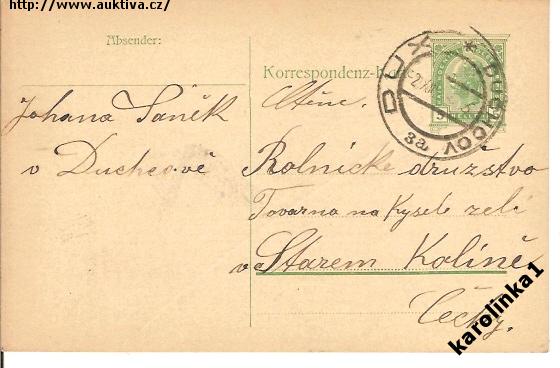 http://www.auktiva.cz/
Absender:
Korrespondenz-Karte
DUX * DUCHCOV
3a
HELLER
Johana Saněk
v Duchcově
Ctěne
Rolnické družstvo
Tovarna na Kyselé zelí
v Starem Kolíně
Čechy.
karolinka1